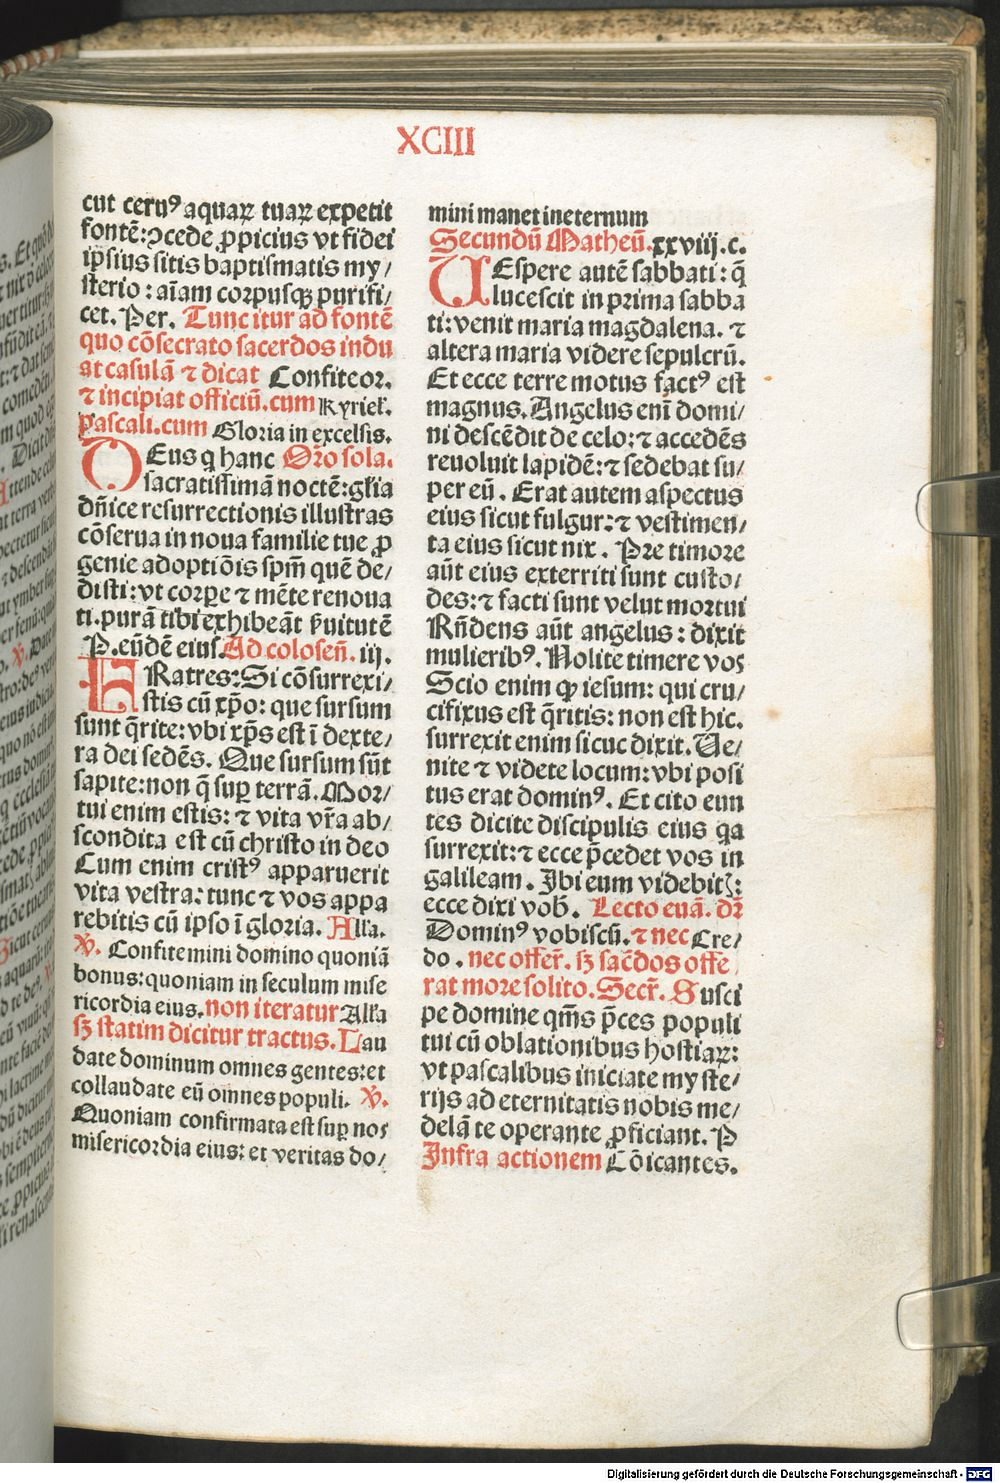 XCIII
cut cerꝰ aquaꝝ tuaꝝ expetit
fontē: ↄcede ꝓpicius vt fidei
ipsius sitis baptismatis my/
sterio: aīam corpusqꝫ purifi/
cet. Per. Tunc itur ad fontē
quo cōsecrato sacerdos indu
at casulā ⁊ dicat Confiteor.
⁊ incipiat officiū. cum Kyriel'.
pascali. cum Gloria in excelsis.
DEus q hanc Orō sola.
sacratissimā noctē: gl'ia
dn̄ice resurrectionis illustras
cōserua in noua familie tue ꝓ
genie adoptiōis sp̄m quē de/
disti: vt corꝑe ⁊ mēte renoua
ti. purā tibi exhibeāt ẜuitutē
P. eūdē eiusſ Ad colosen̄. iij.
FRatres: Si cōsurrexi/
stis cū xp̄o: que sursum
sunt q̄rite: vbi xp̄s est ī dexte/
ra dei sedēs. Que sursum sūt
sapite: non q̄ suꝑ terrā. Mor/
tui enim estis: ⁊ vita vr̄a ab/
scondita est cū christo in deo
Cum enim cristꝰ apparuerit
vita vestra: tunc ⁊ vos appa
rebitis cū ipso ī gloria. All'a.
℣. Confitemini domino quoniā
bonus: quoniam in seculum mise
ricordia eius. non iteratur All'a
sꝫ statim dicitur tractus. Lau
date dominum omnes gentes: et
collaudate eū omnes populi. ℣.
Quoniam confirmata est suꝑ nos
misericordia eius: et veritas do/
mini manet ineternum
Secundū Matheū. xxviij. c.
UEspere autē sabbati: q̄
lucescit in prima sabba
ti: venit maria magdalena. ⁊
altera maria videre sepulcrū.
Et ecce terre motus factꝰ est
magnus. Angelus enī domi/
ni descēdit de celo: ⁊ accedēs
reuoluit lapidē: ⁊ sedebat su/
per eū. Erat autem aspectus
eius sicut fulgur: ⁊ vestimen/
ta eius sicut nix. Pre timore
aūt eius exterriti sunt custo/
des: ⁊ facti sunt velut mortui
Rn̄dens aūt angelus: dixit
mulieribꝰ. Nolite timere vos
Scio enim ꝙ iesum: qui cru/
cifixus est q̄ritis: non est hic.
surrexit enim sicuc dixit. Ue/
nite ⁊ videte locum: vbi posi
tus erat dominꝰ. Et cito eun
tes dicite discipulis eius qa
surrexit: ⁊ ecce p̄cedet vos in
galileam. Ibi eum videbitꝭ:
ecce dixi vob̄. Lecto euā. dr̄
Dominꝰ vobiscū. ⁊ nec Cre/
do. nec offer̄. sꝫ sac̄dos offe
rat more solito. Secr̄. Susci
pe domine qm̄s p̄ces populi
tui cū oblationibus hostiaꝝ:
vt pascalibus iniciate myste/
rijs ad eternitatis nobis me/
delā te operante ꝓficiant. P
Infra actionem Cōicantes.
Digitalisierung gefördert durch die Deutsche Forschungsgemeinschaft - DFG